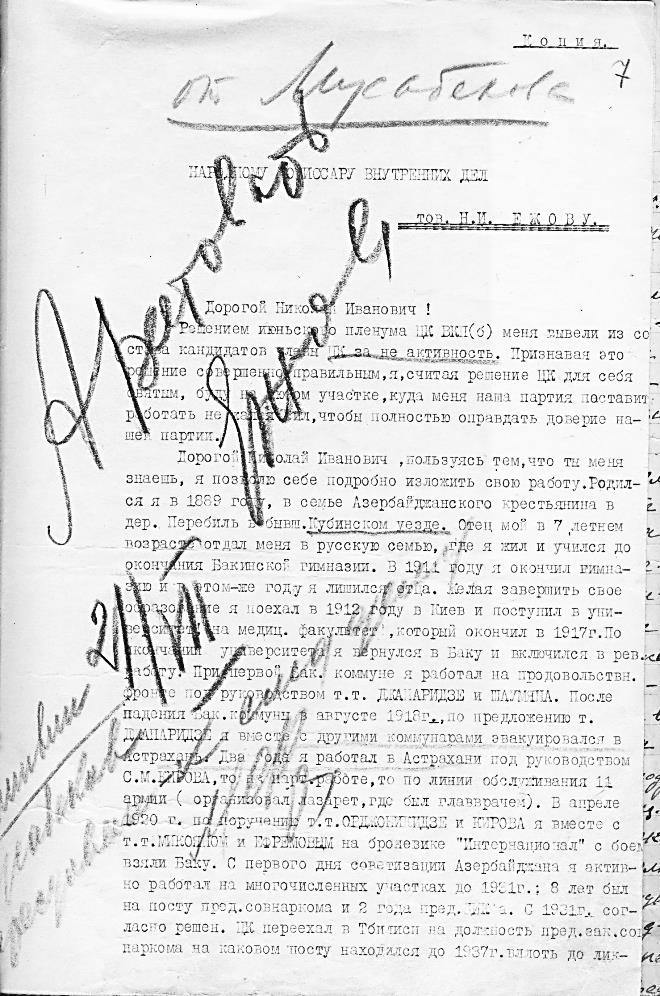 Копия.
7
от Мусабекова
НАРОДНОМУ КОМИССАРУ ВНУТРЕННИХ ДЕЛ
тов. Н.И. ЕЖОВУ.
Арестовать
Дорогой Николай Иванович !
Решением июньского пленума ЦК ВКП(б) меня вывели из со
става кандидатов в члены ЦК за не активность. Признавая это
решение совершенно правильным,я,считая решение ЦК для себя
святым, буду на любом участке,куда меня наша партия поставит
работать не сил,чтобы полностью оправдать доверие на-
шей партии.
Дорогой Николай Иванович ,пользуясь тем,что ты меня
знаешь, я позволю себе подробно изложить свою работу.Родил-
ся я в 1889 году, в семье Азербайджанского крестьянина в
дер. Перебиль в бывш.Кубинском уезде. Отец мой в 7 летнем
возрасте отдал меня в русскую семью, где я жил и учился до
окончания Бакинской гимназии. В 1911 году я окончил гимна-
зию и в этом-же году я лишился отца. Желая завершить свое
образование я поехал в 1912 году в Киев и поступил в уни-
верситет, на медиц. факультет ,который окончил в 1917г.По
окончании университета я вернулся в Баку и включился в рев.
работу. При первой Бак. коммуне я работал на продовольствн.
фронте под руководством т.т. ДЖАПАРИДЗЕ и ШАУМЯНА. После
падения Бак.коммуны в августе 1918г.,по предложению т.
ДЖАПАРИДЗЕ я вместе с другими коммунарами эвакуировался в
Астрахань. Два года я работал в Астрахани под руководством
С.М.КИРОВА,то на парт.работе,то по линии обслуживания 11
армии ( организовал лазарет,где был главврачем). В апреле
1920 г. по поручению т.т.ОРДЖОНИКИДЗЕ и КИРОВА я вместе с
т.т.МИКОЯНОМ и ЕФРЕМОВЫМ на броневике "Интернационал" с боем
взяли Баку. С первого дня советизации Азербайджана я актив-
но работал на многочисленных участках до 1931г.; 8 лет был
на посту пред.совнаркома и 2 года пред.ЦИК'а. С 1931г. сог-
ласно решен. ЦК переехал в Тбилиси на должность пред.зак.сов
наркома на каковом посту находился до 1937г.вплоть до лик-